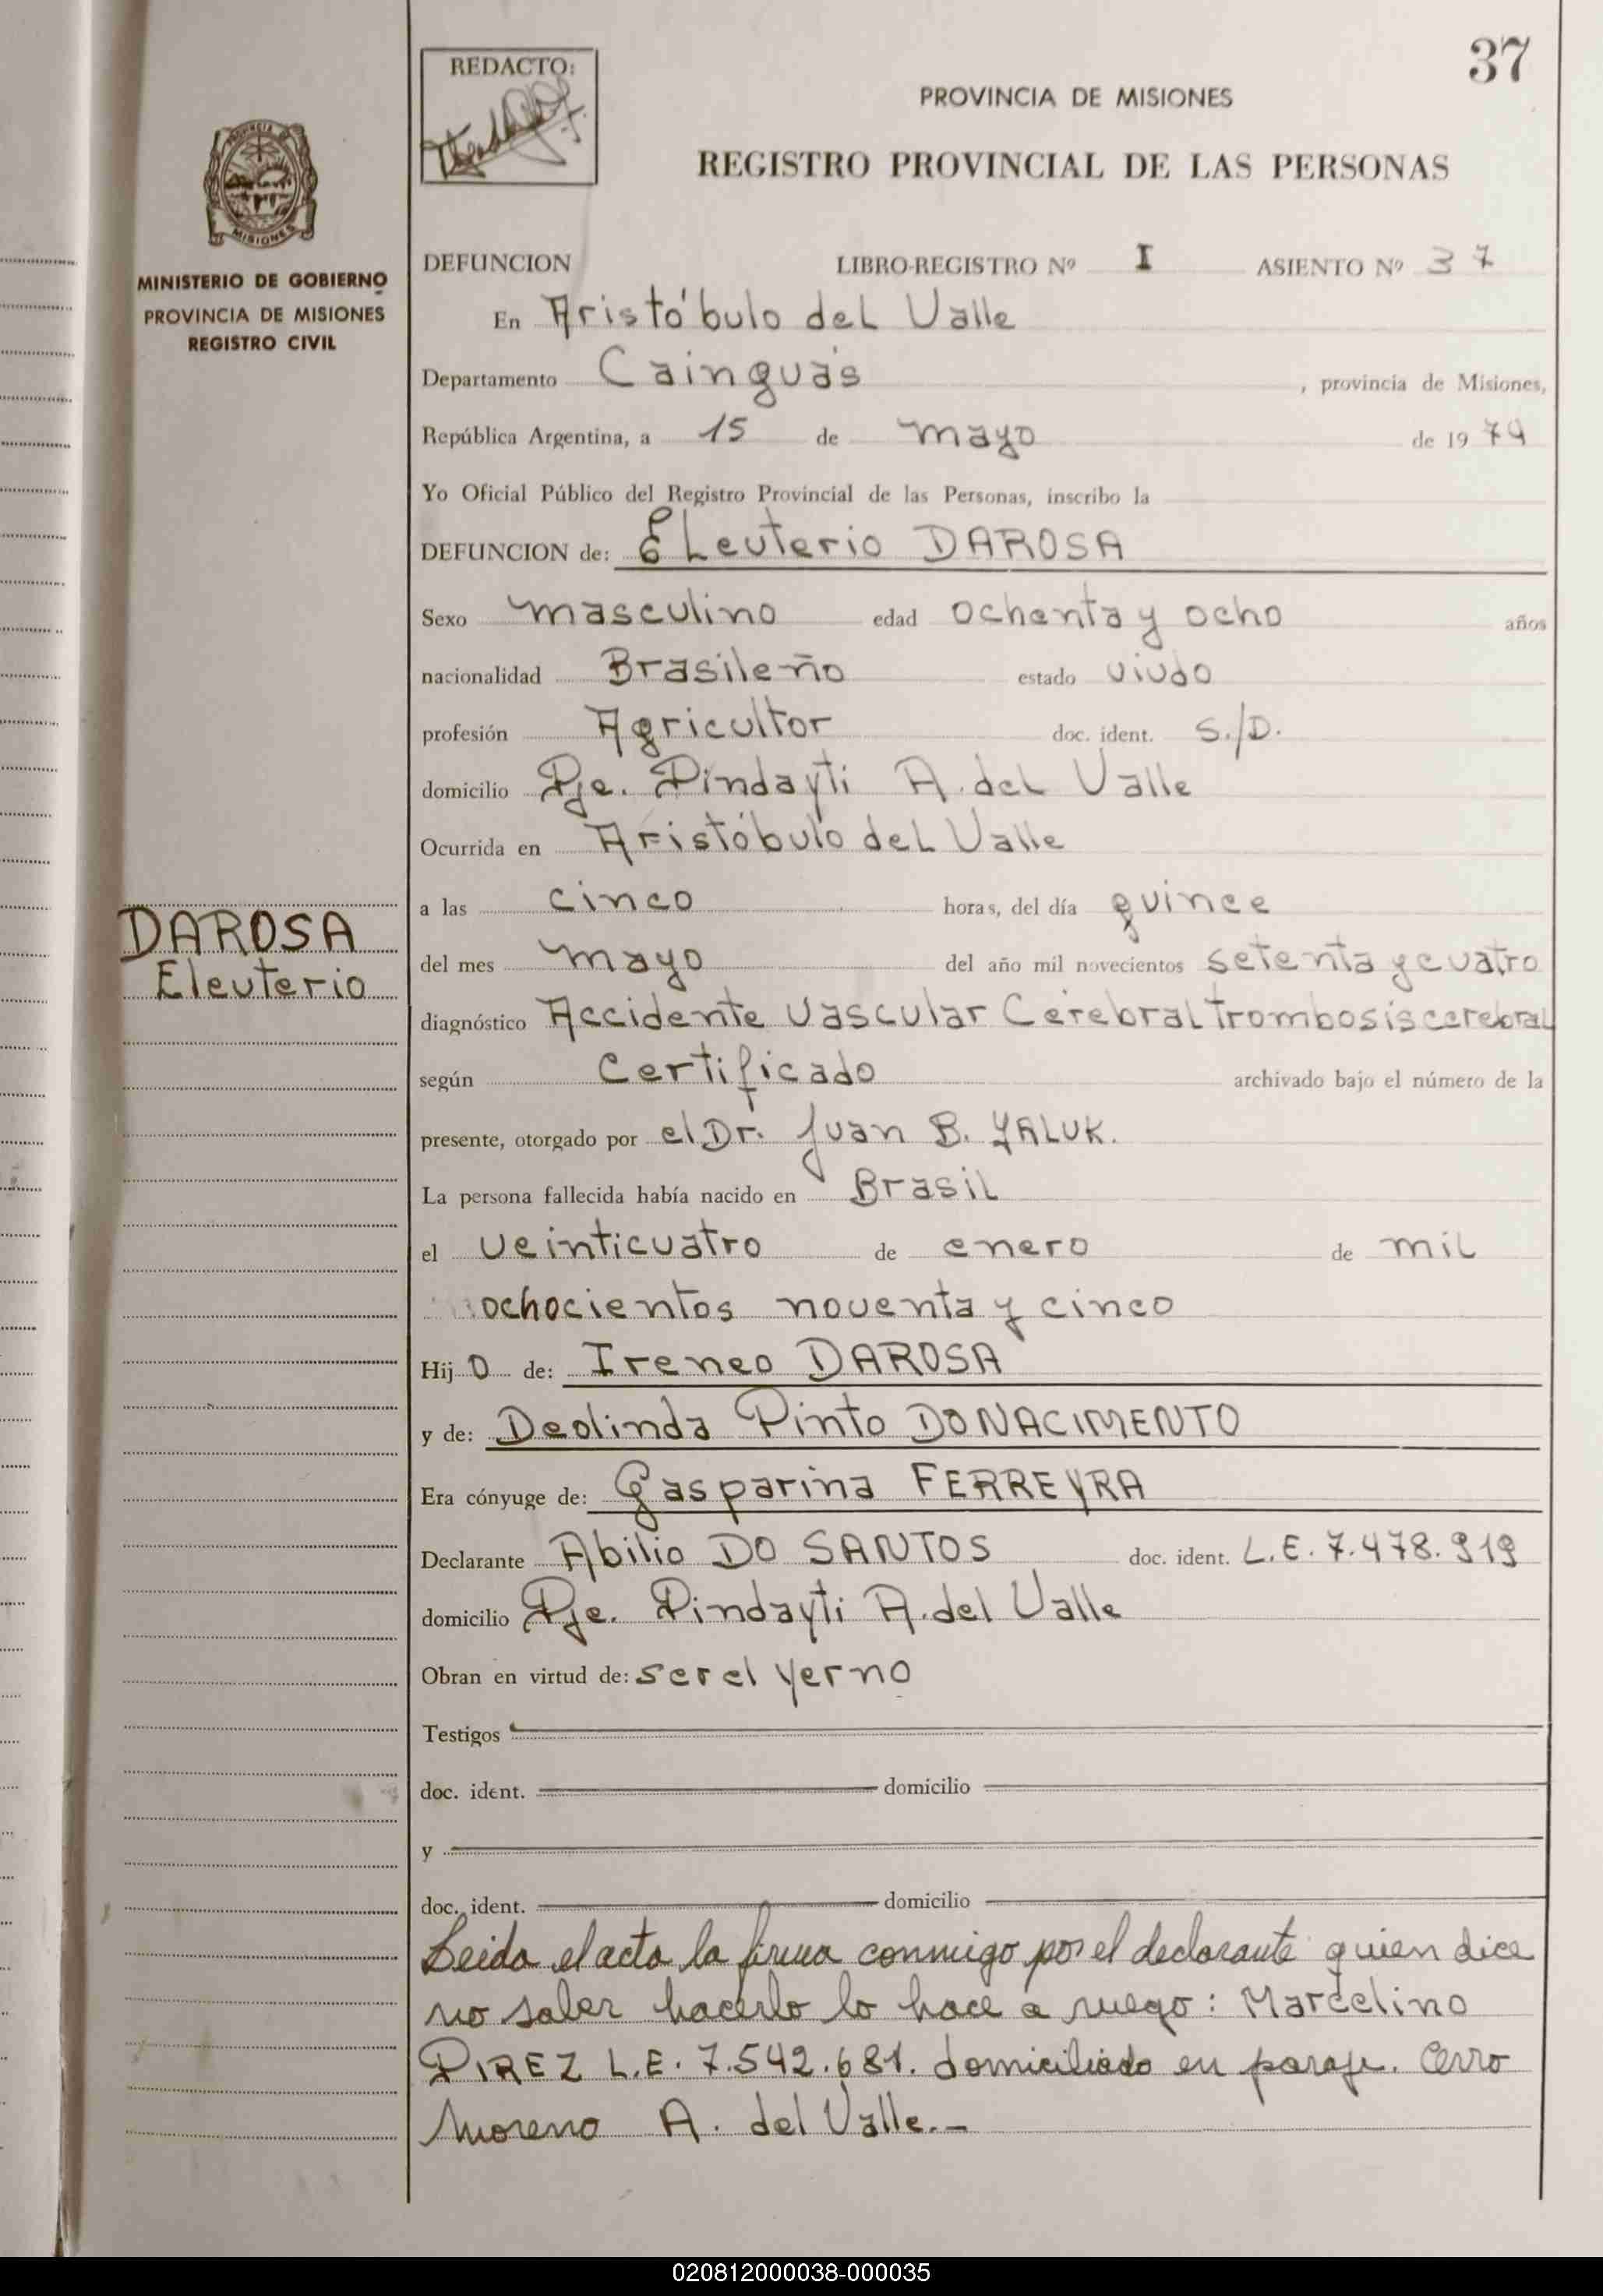 37
REDACTO:
PROVINCIA DE MISIONES
REGISTRO PROVINCIAL DE LAS PERSONAS
MISIONES
MINISTERIO DE GOBIERNO
PROVINCIA DE MISIONES
REGISTRO CIVIL
DEFUNCION LIBRO-REGISTRO Nº I ASIENTO Nº 37
En Aristóbulo del Valle
Departamento Cainguás , provincia de Misiones,
República Argentina, a 15 de mayo de 1974
Yo Oficial Público del Registro Provincial de las Personas, inscribo la
DEFUNCION de: Eleuterio DAROSA
Sexo masculino edad ochenta y ocho años
nacionalidad Brasileño estado viudo
profesión Agricultor doc. ident. S./D.
domicilio Pje. Pindayti A. del Valle
Ocurrida en Aristóbulo del Valle
a las cinco horas, del día quince
DAROSA
Eleuterio
del mes mayo del año mil novecientos setenta y cuatro
diagnóstico Accidente Vascular Cerebral Trombosis cerebral
según Certificado archivado bajo el número de la
presente, otorgado por el Dr. Juan B. YALUK.
La persona fallecida había nacido en Brasil
el veinticuatro de enero de mil
ochocientos noventa y cinco
Hijo de: Ireneo DAROSA
y de: Deolinda Pinto DONACIMENTO
Era cónyuge de: Gasparina FERREYRA
Declarante Abilio DO SANTOS doc. ident. L.E. 7.478.919
domicilio Pje. Pindayti A. del Valle
Obran en virtud de: ser el yerno
Testigos
doc. ident. domicilio
y
doc. ident. domicilio
Leida el acta la firma conmigo por el declarante quien dice
no saber hacerlo lo hace a ruego: Marcelino
PIREZ L.E. 7.542.681. domiciliado en paraje. Cerro
Moreno A. del Valle.-
020812000038-000035